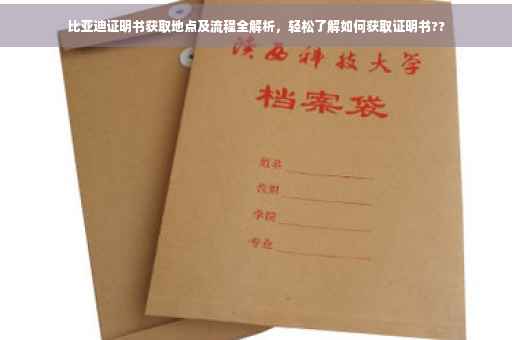 比亚迪证明书获取地点及流程全解析，轻松了解如何获取证明书??
陕西科技大学
档案袋
姓名
教组
学院
专业